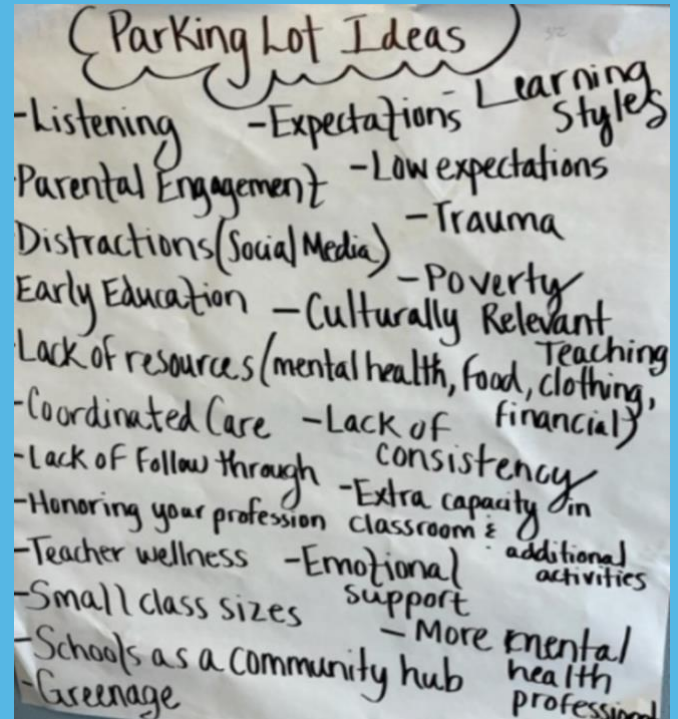 Parking Lot Ideas
- Learning Styles
-Listening -Expectations
Parental Engagement -Low expectations
-Trauma
Distractions (Social Media)
-Poverty
Early Education -Culturally Relevant Teaching
-Lack of resources (mental health, food, clothing, financial)
-Coordinated Care -Lack of consistency
-Lack of Follow through
-Extra capacity in classroom & additional activities
-Honoring your profession
-Teacher wellness -Emotional support
-Small class sizes
- More mental health professional
-Schools as a community hub
-Greenage